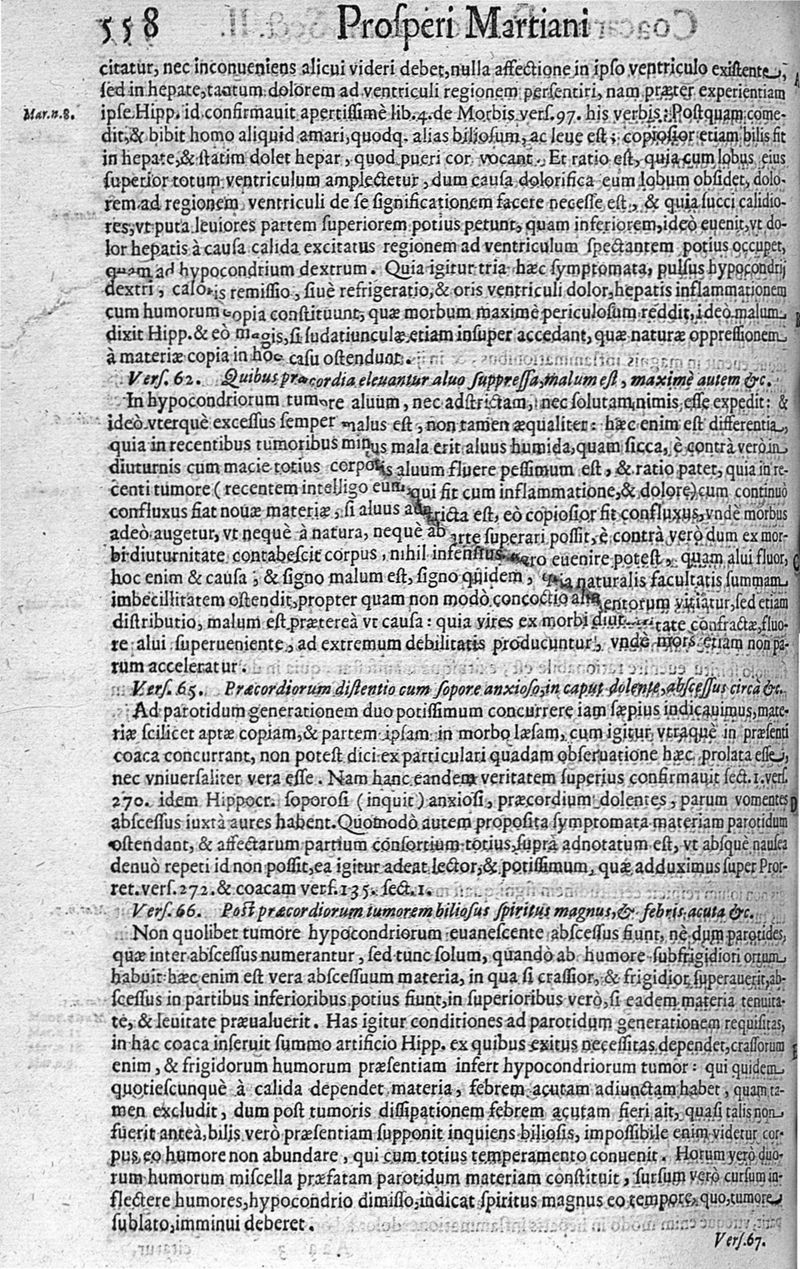 558 Prosperi Martiani
citatur, nec inconueniens alicui videri debet, nulla affectione in ipso ventriculo existente,
sed in hepate, tantum dolorem ad ventriculi regionem persentiri, nam præter experientiam
Mar. n. 8.
ipse Hipp. id confirmauit apertissimè lib. 4. de Morbis vers. 97. his verbis: Postquam come-
dit, & bibit homo aliquid amari, quodq. alias biliosum, ac leue est; copiosior etiam bilis fit
in hepate, & statim dolet hepar, quod pueri cor vocant. Et ratio est, quia cum lobus eius
superior totum ventriculum amplectetur, dum causa dolorifica eum lobum obsidet, dolo-
rem ad regionem ventriculi de se significationem facere necesse est, & quia succi calidio-
res, vt puta leuiores partem superiorem potius petunt, quam inferiorem, ideò euenit, vt do-
lor hepatis à causa calida excitatus regionem ad ventriculum spectantem potius occupet,
quam ad hypocondrium dextrum. Quia igitur tria hæc symptomata, pulsus hypocondrij
dextri, caloris remissio, siuè refrigeratio, & oris ventriculi dolor, hepatis inflammationem
cum humorum copia constituunt, quæ morbum maximè periculosum reddit, ideò malum
dixit Hipp. & eò magis, si sudatiunculæ etiam insuper accedant, quæ naturæ oppressionem
à materiæ copia in hoc casu ostendunt.
Vers. 62. Quibus præcordia eleuantur aluo suppressa, malum est, maximè autem &c.
In hypocondriorum tumore aluum, nec adstrictam, nec solutam nimis esse expedit: &
ideò vterquè excessus semper malus est, non tamen æqualiter: hæc enim est differentia,
quia in recentibus tumoribus minus mala erit aluus humida, quam sicca, è contrà verò in
diuturnis cum macie totius corporis aluum fluere pessimum est, & ratio patet, quia in re-
centi tumore (recentem intelligo eum, qui fit cum inflammatione, & dolore) cum continuò
confluxus fiat nouæ materiæ, si aluus adstricta est, eò copiosior fit confluxus, vndè morbus
adeò augetur, vt nequè à natura, nequè ab arte superari possit, è contrà verò dum ex mor-
bi diuturnitate contabescit corpus, nihil infensius vero euenire potest, quam alui fluor,
hoc enim & causa, & signo malum est, signo quidem, quia naturalis facultatis summam
imbecillitatem ostendit, propter quam non modò concoctio alimentorum vitiatur, sed etiam
distributio, malum est prætereà vt causa: quia vires ex morbi diuturnitate confractæ, fluo-
re alui superueniente, ad extremum debilitatis producuntur, vndè mors etiam non pa-
rum acceleratur.
Vers. 65. Præcordiorum distentio cum sopore anxioso, in caput dolente, abscessus circa &c.
Ad parotidum generationem duo potissimum concurrere iam sæpius indicauimus, mate-
riæ scilicet aptæ copiam, & partem ipsam in morbo læsam, cum igitur vtraquè in præsenti
coaca concurrant, non potest dici ex particulari quadam obseruatione hæc prolata esse,
nec vniuersaliter vera esse. Nam hanc eandem veritatem superius confirmauit sect. 1. vers.
270. idem Hippocr. soporosi (inquit) anxiosi, præcordium dolentes, parum vomentes
abscessus iuxtà aures habent. Quomodò autem proposita symptomata materiam parotidum
ostendant, & affectarum partium consortium totius, suprà adnotatum est, vt absquè nausea
denuò repeti id non possit, ea igitur adeat lector, & potissimum, quæ adduximus super Pror-
ret. vers. 272. & coacam vers. 135. sect. 1.
Vers. 66. Post præcordiorum tumorem biliosus spiritus magnus, & febris acuta &c.
Non quolibet tumore hypocondriorum euanescente abscessus fiunt, nè dum parotides,
quæ inter abscessus numerantur, sed tunc solum, quandò ab humore subfrigidiori ortum
habuit hæc enim est vera abscessuum materia, in qua si crassior, & frigidior superauerit, ab-
scessus in partibus inferioribus potius fiunt, in superioribus verò, si eadem materia tenuita-
te, & leuitate præualuerit. Has igitur conditiones ad parotidum generationem requisitas,
in hac coaca inseruit summo artificio Hipp. ex quibus exitus necessitas dependet, crassorum
enim, & frigidorum humorum præsentiam infert hypocondriorum tumor: qui quidem
quotiescunquè à calida dependet materia, febrem acutam adiunctam habet, quam ta-
men excludit, dum post tumoris dissipationem febrem acutam fieri ait, quasi talis non
fuerit anteà, bilis verò præsentiam supponit inquiens biliosis, impossibile enim videtur cor-
pus eo humore non abundare, qui cum totius temperamento conuenit. Horum verò duo-
rum humorum miscella præfatam parotidum materiam constituit, sursum verò cursum in-
flectere humores, hypocondrio dimisso, indicat spiritus magnus eo tempore, quo, tumore
sublato, imminui deberet.
Vers. 67.